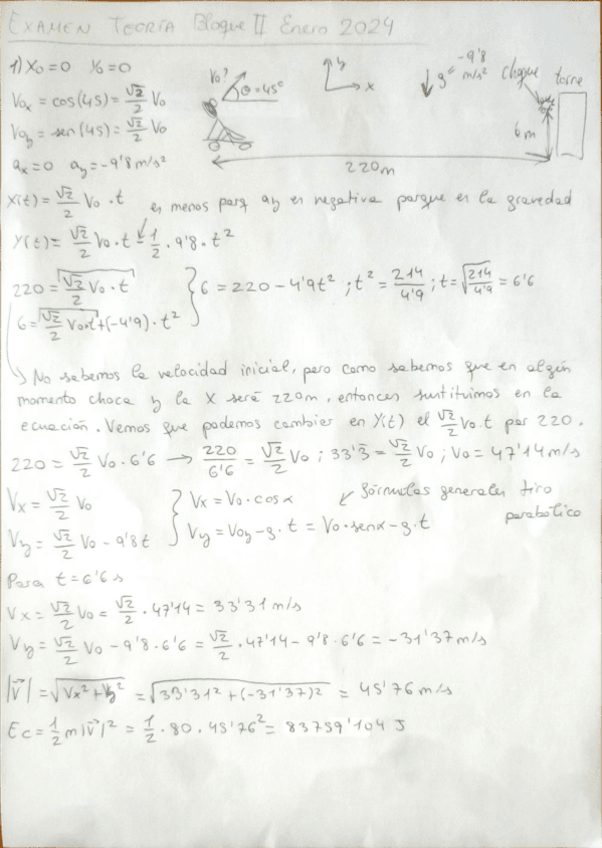 EXAMEN TEORÍA Bloque II Enero 2024
1) X₀=0 Y₀=0
V₀ₓ = cos(45) = √2/2 V₀
V₀y = sen(45) = √2/2 V₀
aₓ=0 ay=-9'8 m/s²
V₀?
θ=45°
y
x
g=
-9'8 m/s²
choque
torre
6m
220m
X(t) = √2/2 V₀ · t
es menos porq ay es negativa porque es la gravedad
Y(t) = √2/2 V₀ · t - 1/2 · 9'8 · t²
220 = √2/2 V₀ · t
6 = √2/2 V₀·t + (-4'9) · t²
} 6 = 220 - 4'9t² ; t² = 214/4'9 ; t = √(214/4'9) = 6'6
↳ No sabemos la velocidad inicial, pero como sabemos que en algún
momento choca y la X será 220m, entonces sustituimos en la
ecuación. Vemos que podemos cambiar en Y(t) el √2/2 V₀·t por 220.
220 = √2/2 V₀ · 6'6 → 220/6'6 = √2/2 V₀ ; 33'3̄ = √2/2 V₀ ; V₀ = 47'14 m/s
Vₓ = √2/2 V₀
Vy = √2/2 V₀ - 9'8t
} Vₓ = V₀ · cosα
Vy = V₀y - g · t = V₀ · senα - g · t
↙ fórmulas generales tiro
parabólico
Para t = 6'6 s
Vₓ = √2/2 V₀ = √2/2 · 47'14 = 33'31 m/s
Vy = √2/2 V₀ - 9'8 · 6'6 = √2/2 · 47'14 - 9'8 · 6'6 = -31'37 m/s
|v⃗| = √(Vₓ² + Vy²) = √(33'31² + (-31'37)²) = 45'76 m/s
Ec = 1/2 m|v⃗|² = 1/2 · 80 · 45'76² = 83759'104 J